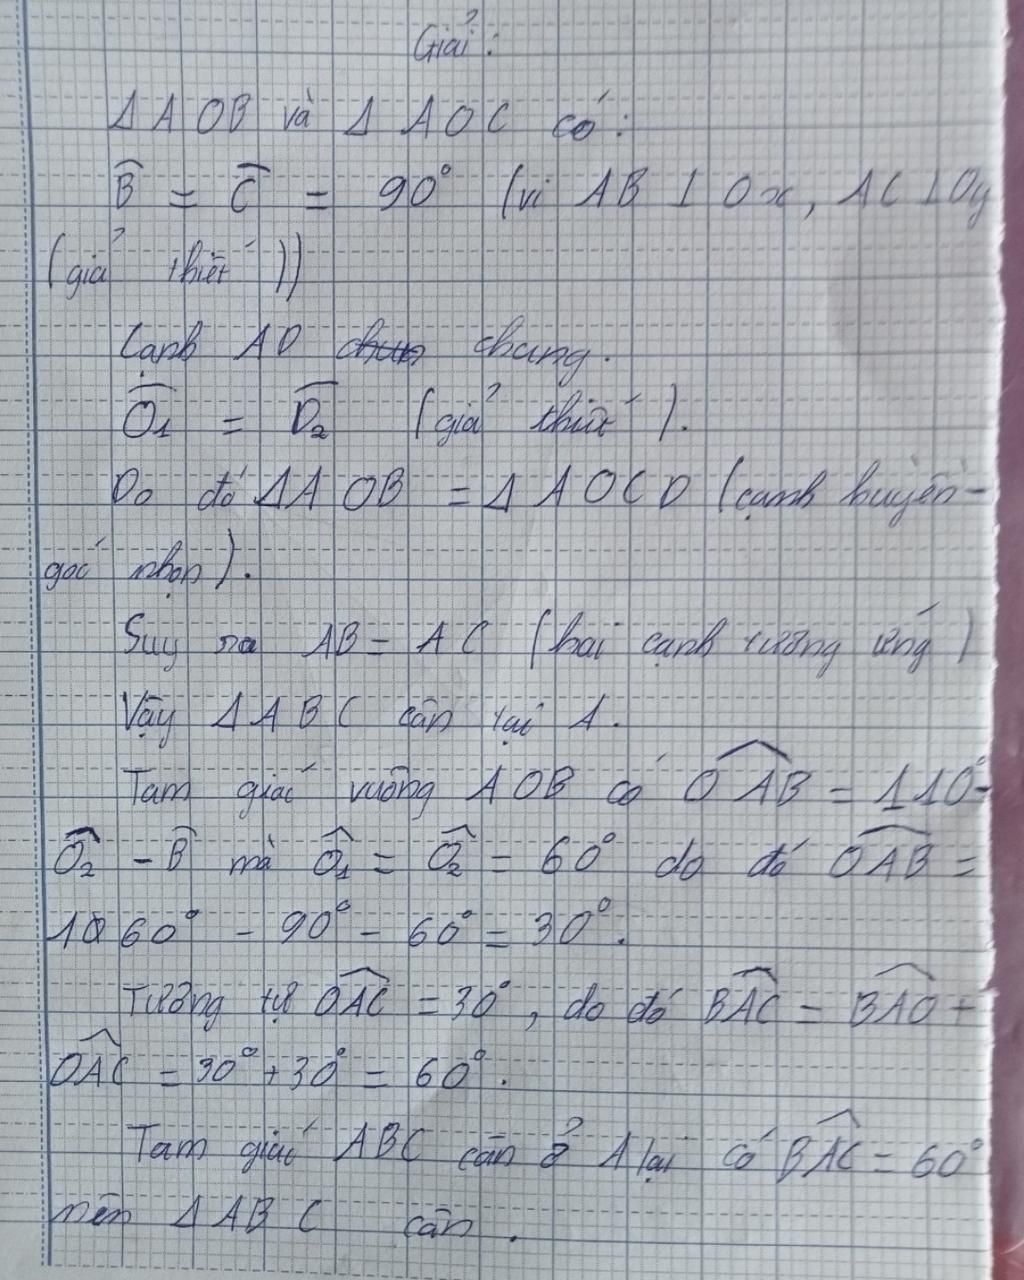 Giải:
Δ A OB và Δ AOC có:
B̂ = Ĉ = 90° (vì AB ⊥ Ox, AC ⊥ Oy
(giả thiết))
Cạnh AO chung.
Ô1 = Ô2 (giả thiết).
Do đó ΔA OB = Δ AOCD (cạnh huyền-
góc nhọn).
Suy ra AB = AC (hai cạnh tương ứng)
Vậy ΔABC cân tại A.
Tam giác vuông AOB có OÂB = 110°-
Ô2 - B̂ mà Ô1 = Ô2 = 60° do đó OÂB =
60° - 90° - 60° = 30°.
Tương tự OÂC = 30°, do đó BÂC = BÂO +
OÂC = 30° + 30° = 60°.
Tam giác ABC cân ở A lại có BÂC = 60°
nên ΔABC cân.